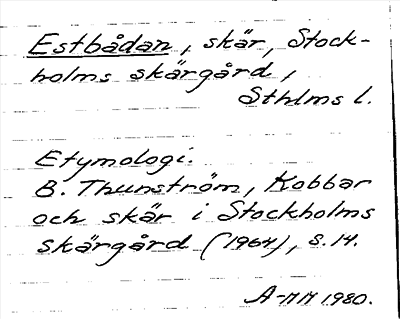 Estbådan, skär, Stock-
holms skärgård,
Sthlms l.
Etymologi.
B. Thunström, Kobbar
och skär i Stockholms
skärgård (1964), s. 14.
A-MM 1980.